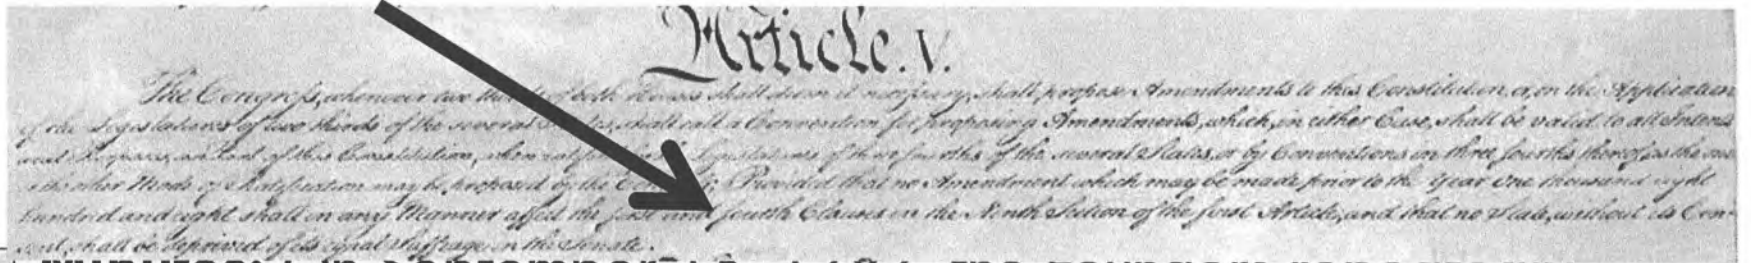 Article. V.
The Congress, whenever two thirds of both Houses shall deem it necessary, shall propose Amendments to this Constitution, or, on the Application
of the Legislatures of two thirds of the several States, shall call a Convention for proposing Amendments, which, in either Case, shall be valid to all Intents
and Purposes, as Part of this Constitution, when ratified by the Legislatures of three fourths of the several States, or by Conventions in three fourths thereof, as the one
or the other Mode of Ratification may be proposed by the Provided that no Amendment which may be made prior to the Year One thousand eight
hundred and eight shall in any Manner affect the first and fourth Clauses in the Ninth Section of the first Article; and that no State, without its Con-
sent, shall be deprived of its equal Suffrage in the Senate.